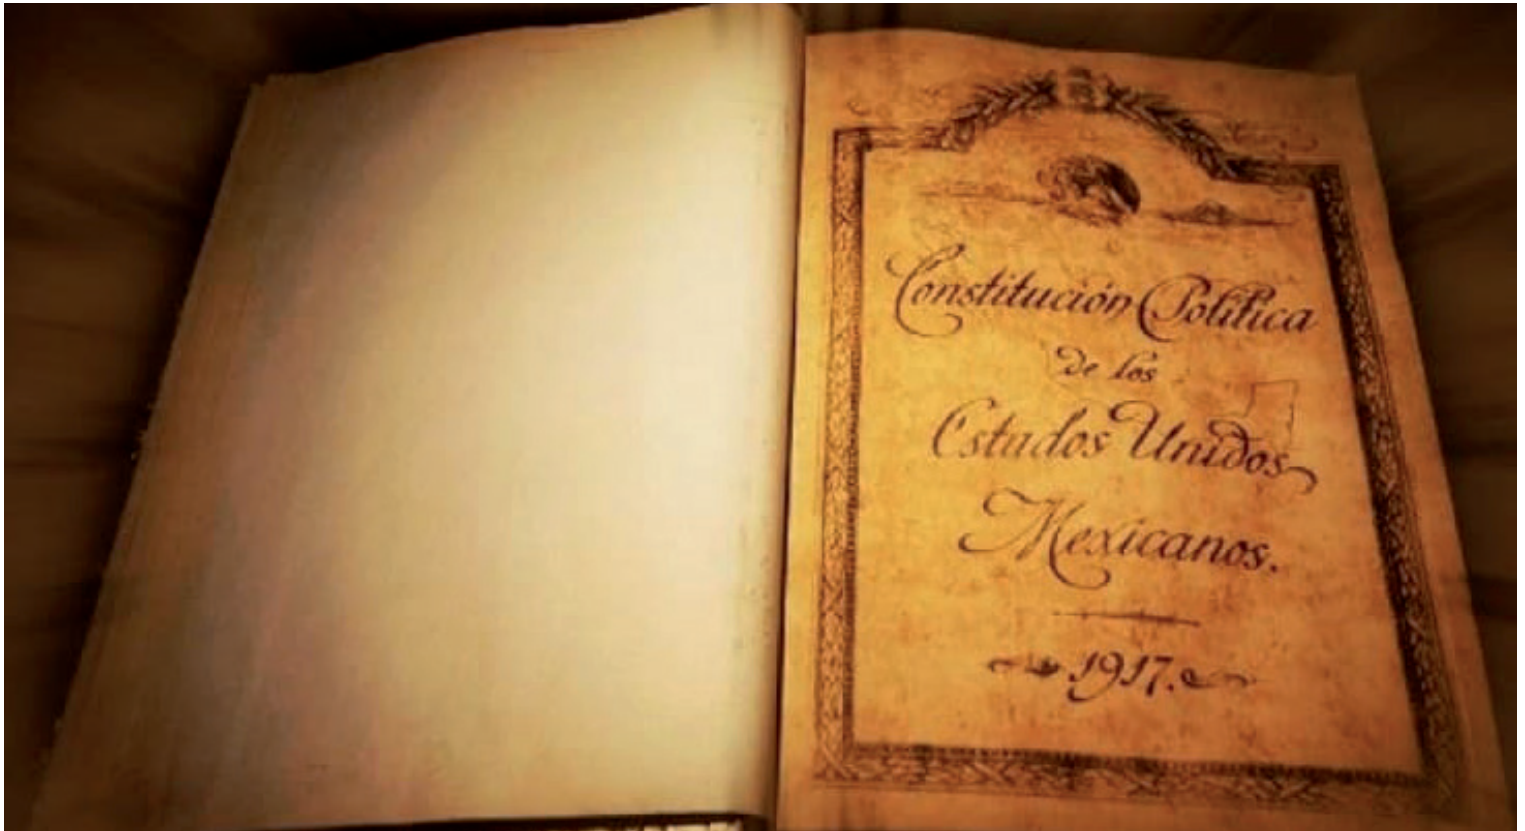 Constitución Política
de los
Estados Unidos
Mexicanos.
.1917.